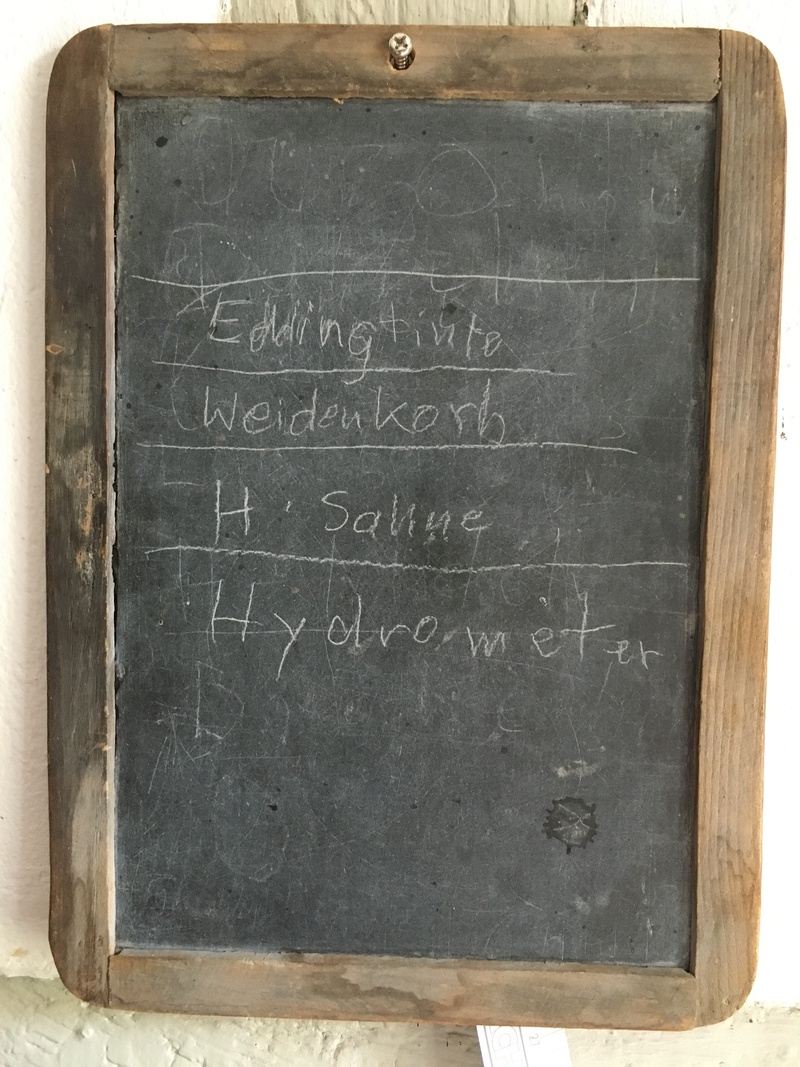 Eddingtinte
Weidenkorb
H. Sahne
Hydrometer